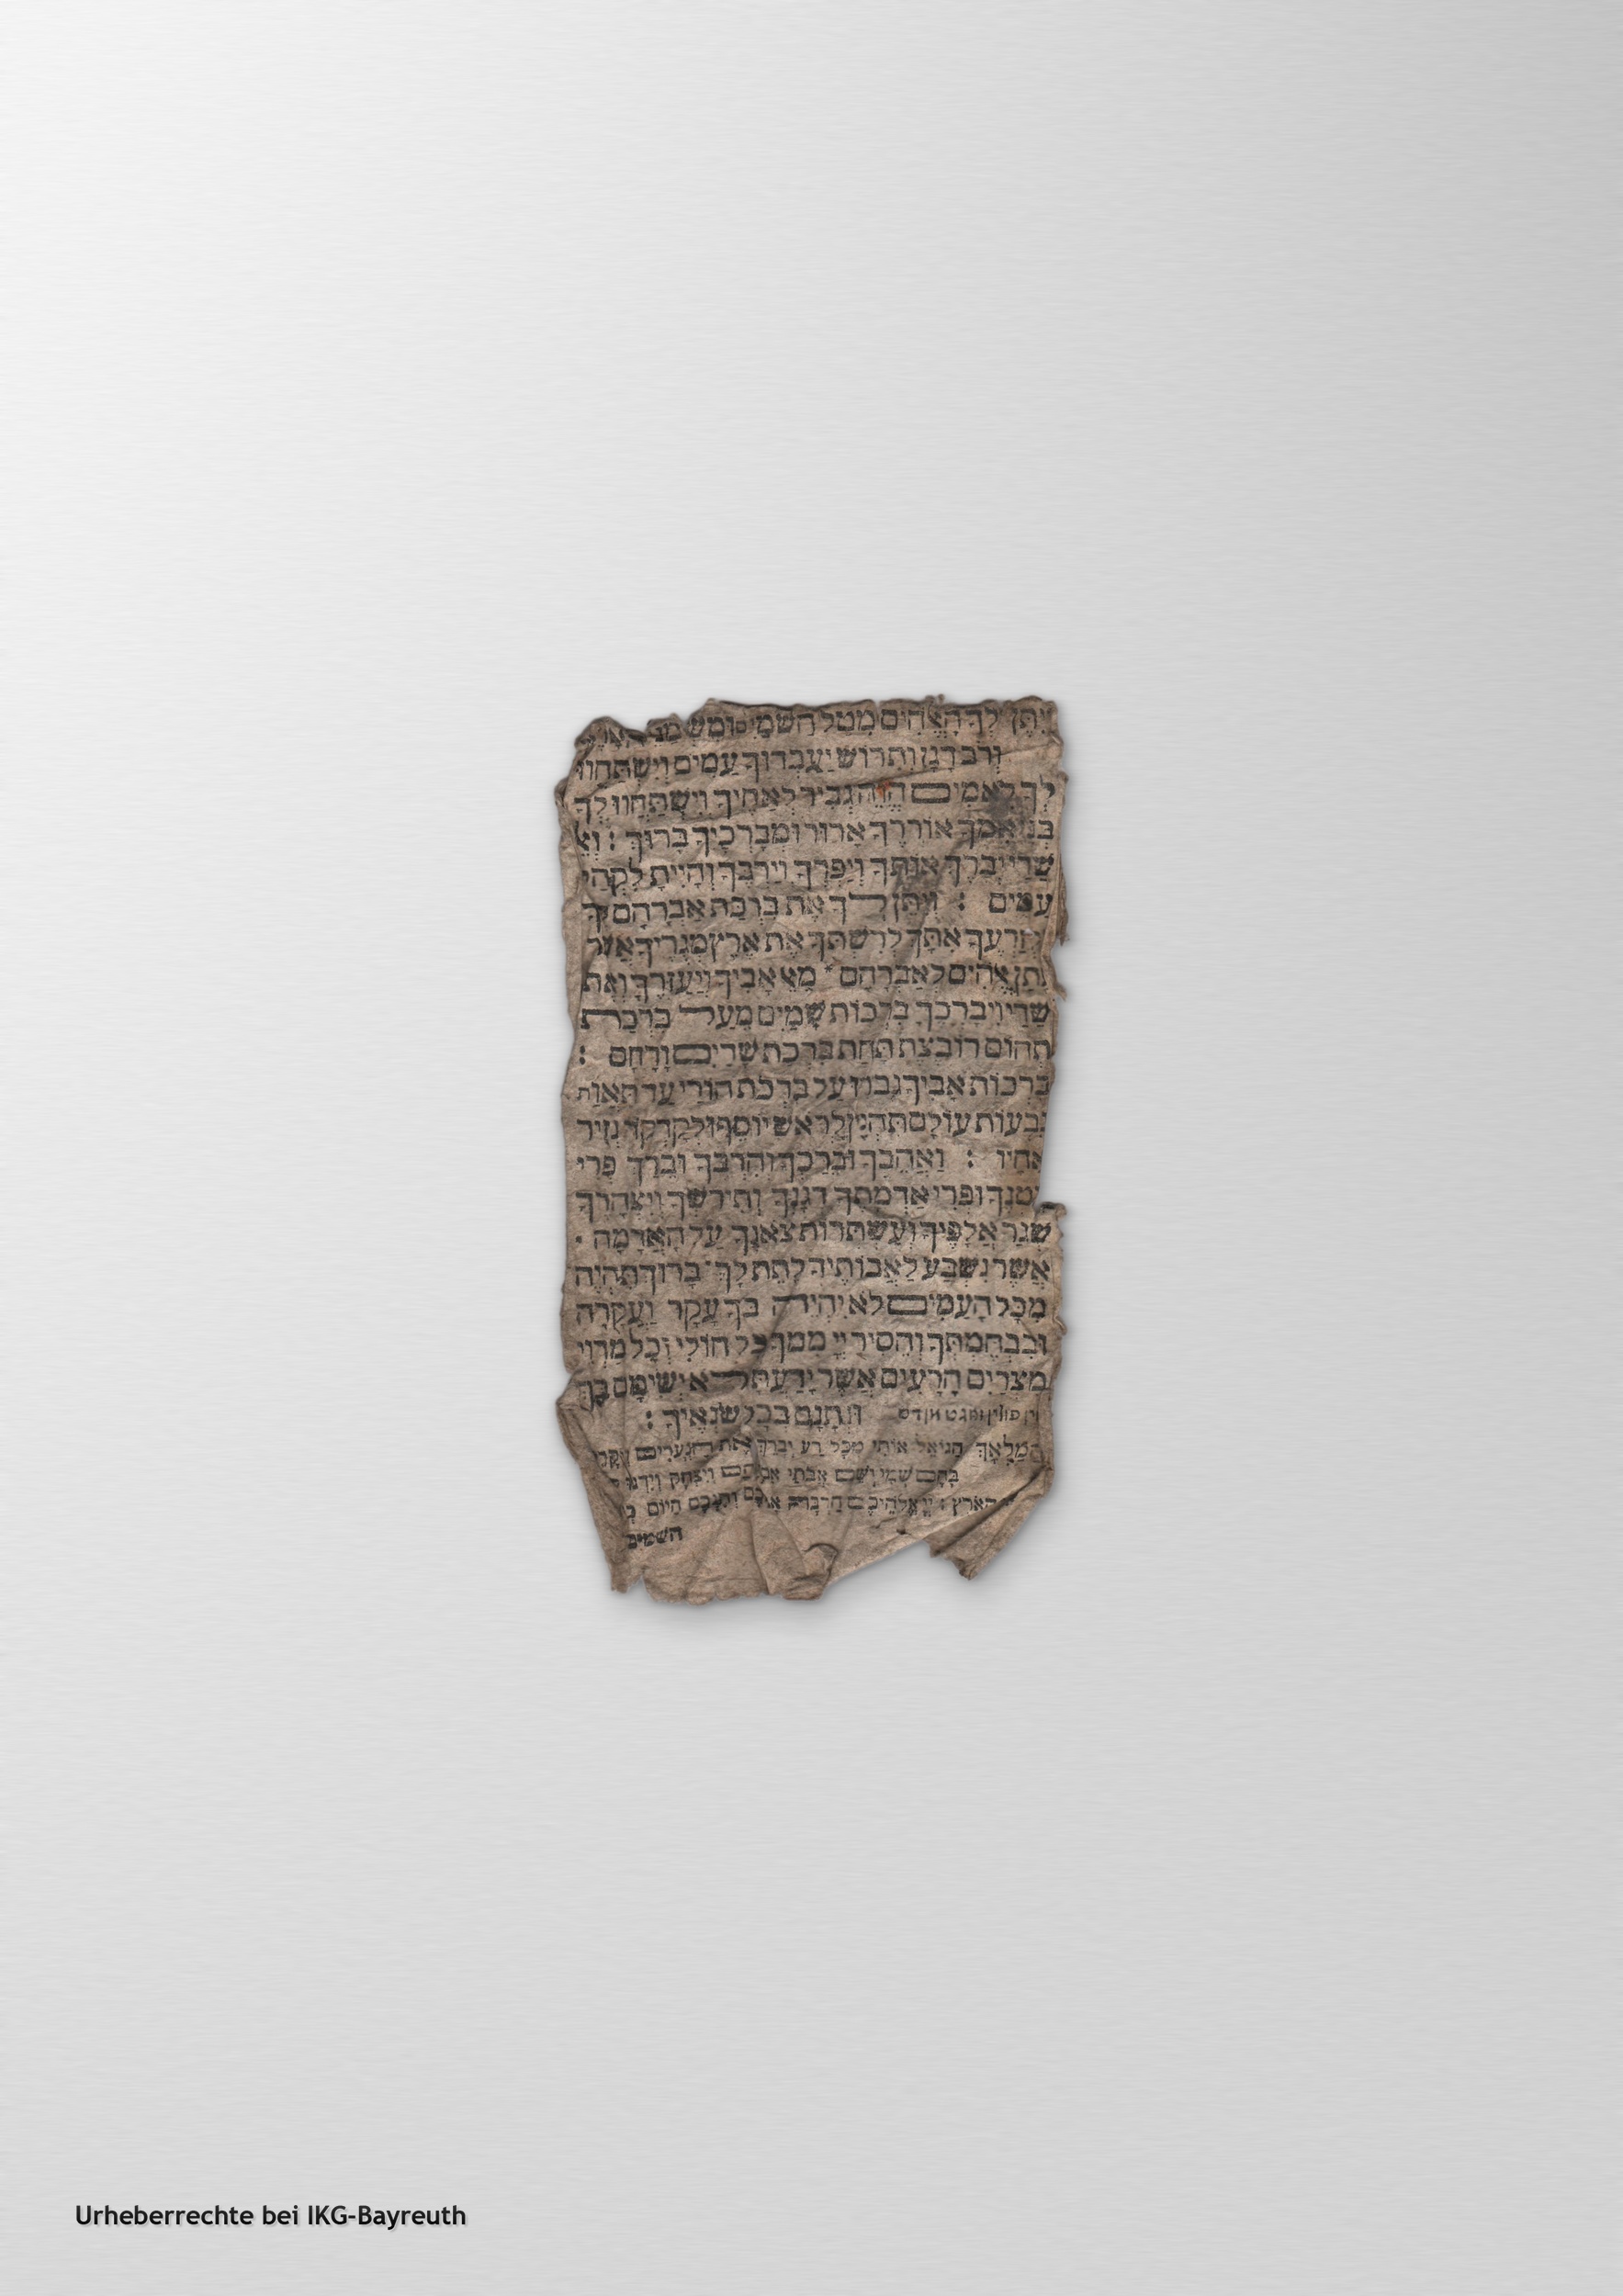 ויתן לך האלהים מטל השמים ומשמני
ורב דגן ותרוש יעבדוך עמים וישתחוו
לך לאמים הוה גביר לאחיך וישתחוו לך
בני אמך אורריך ארור ומברכיך ברוך : וא
שדי יברך אותך ויפרך וירבך והיית לקהל
עמים : ויתן לך את ברכת אברהם לך
ולזרעך אתך לרשתך את ארץ מגריך אשר
נתן אלהים לאברהם מאל אביך ויעזרך ואת
שדי ויברכך ברכות שמים מעל ברכת
תהום רובצת תחת ברכת שדים ורחם :
ברכות אביך גברו על ברכת הורי עד תאות
גבעות עולם תהיין לראש יוסף ולקדקד נזיר
אחיו : ואהבך וברכך והרבך וברך פרי
בטנך ופרי אדמתך דגנך ותירשך ויצהרך
שגר אלפיך ועשתרות צאנך על האדמה
אשר נשבע לאבותיך לתת לך ברוך תהיה
מכל העמים לא יהיה בך עקר ועקרה
ובבהמתך והסיר יי ממך כל חולי וכל מדוי
מצרים הרעים אשר ידעת לא ישימם בך
ונתנם בכל שנאיך :
המלאך הגואל אותי מכל רע יברך את הנערים ויקרא
בהם שמי ושם אבתי אברהם ויצחק וידגו
הארץ : יי אלהיכם הרבה אתכם והנכם היום
השמים
Urheberrechte bei IKG-Bayreuth